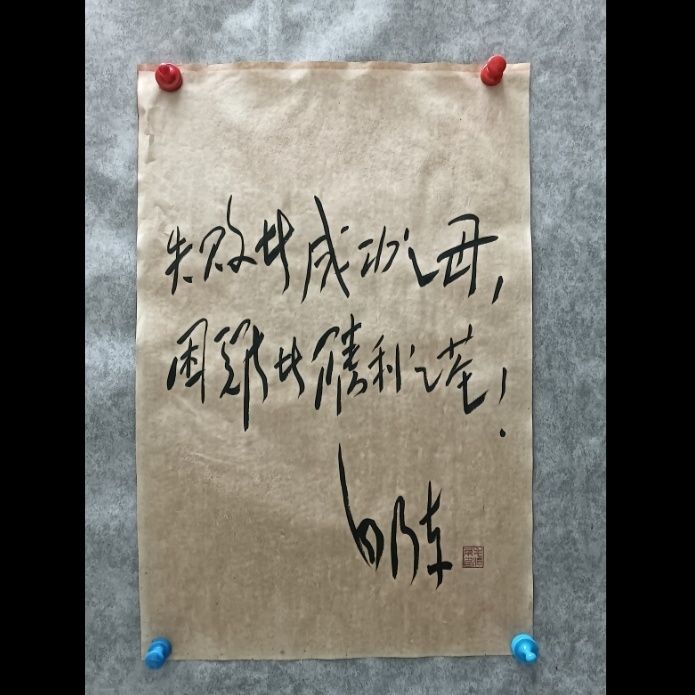 失败是成功之母，
困难是胜利之基！